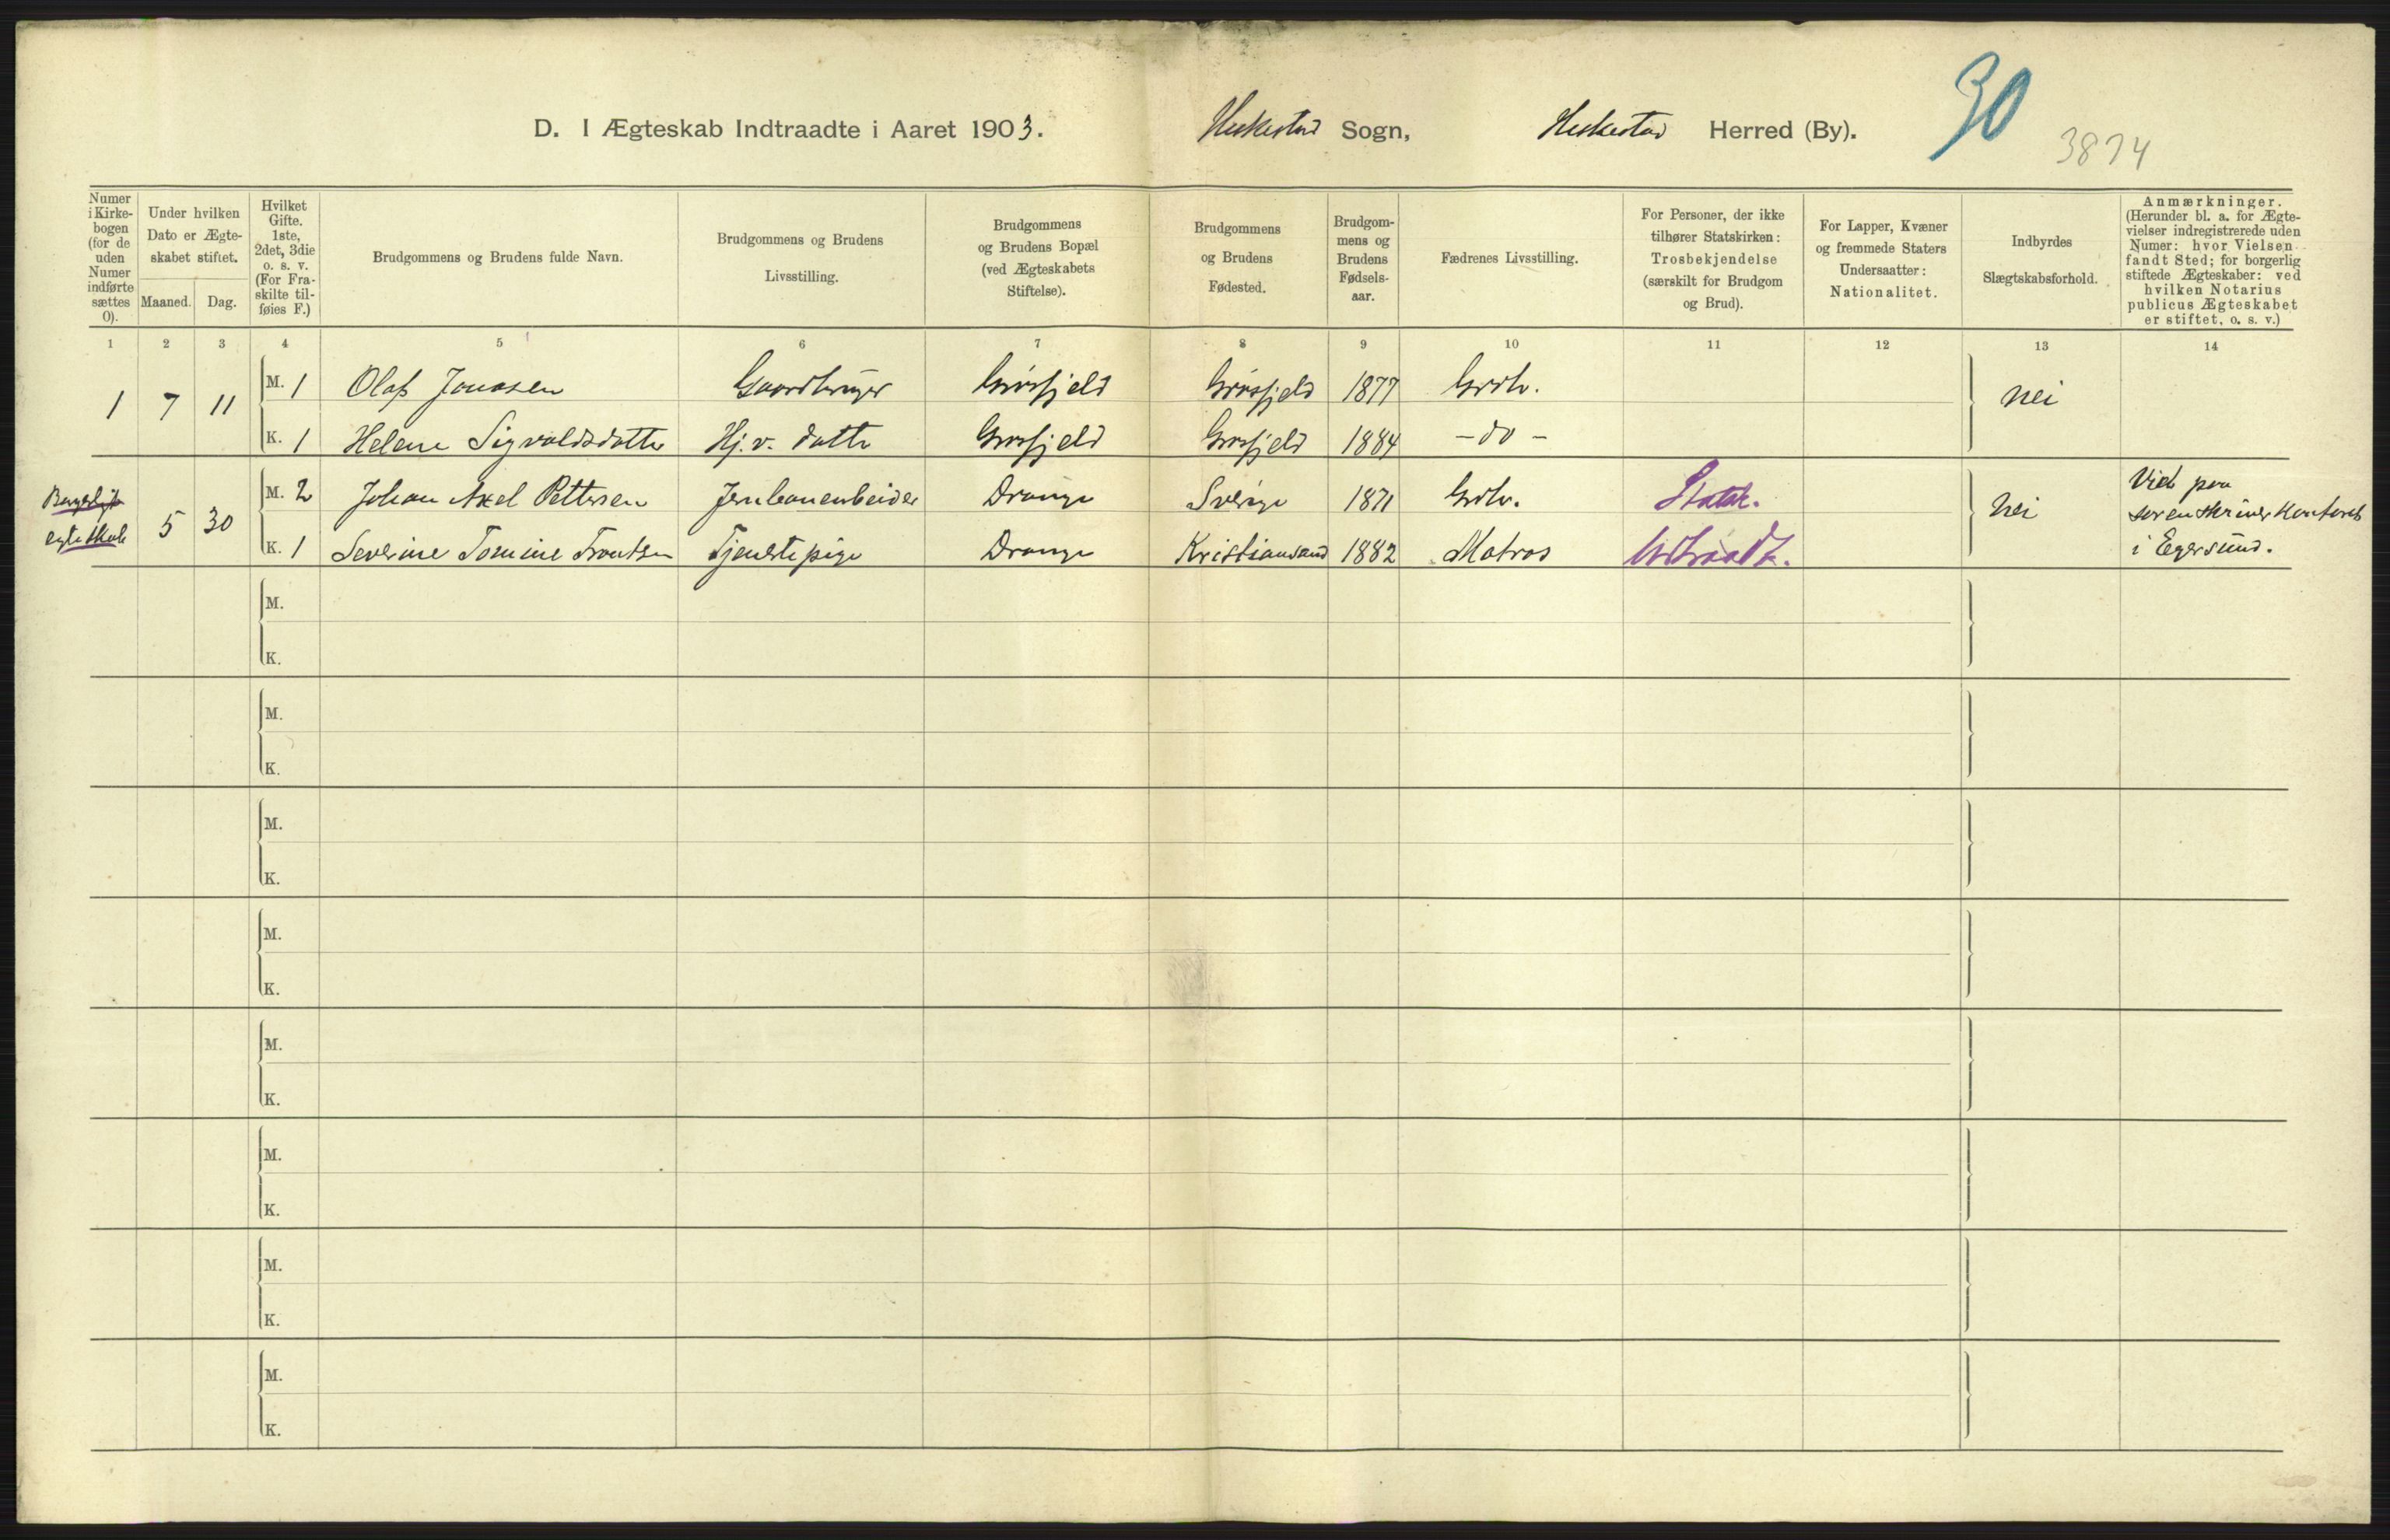 30
3874
D. I Ægteskab Indtraadte i Aaret 1903. Heskestad Sogn, Heskestad Herred (By).
Numer i Kirkebogen (for de uden Numer indførte sættes 0).
Under hvilken Dato er Ægteskabet stiftet.
Maaned. Dag.
Hvilket Gifte. 1ste, 2det, 3die o. s. v. (For Fraskilte tilføies F.)
Brudgommens og Brudens fulde Navn.
Brudgommens og Brudens Livsstilling.
Brudgommens og Brudens Bopæl (ved Ægteskabets Stiftelse).
Brudgommens og Brudens Fødested.
Brudgommens og Brudens Fødselsaar.
Fædrenes Livsstilling.
For Personer, der ikke tilhører Statskirken: Trosbekjendelse (særskilt for Brudgom og Brud).
For Lapper, Kvæner og fremmede Staters Undersaatter: Nationalitet.
Indbyrdes Slægtskabsforhold.
Anmærkninger. (Herunder bl. a. for Ægtevielser indregistrerede uden Numer: hvor Vielsen fandt Sted; for borgerlig stiftede Ægteskaber: ved hvilken Notarius publicus Ægteskabet er stiftet, o. s. v.)
1 2 3 4 5 6 7 8 9 10 11 12 13 14
1 7 11 M. 1 Olaf Jonasen Gaardbruger Grøsfjeld Grøsfjeld 1877 Grdb. nei
K. 1 Helene Sigvaldsdatter Hj.v. datter Grøsfjeld Grøsfjeld 1884 - do -
Borgerligt egteskab 5 30 M. 2 Johan Axel Pettersen Jernbanearbeider Drange Sverige 1871 Grdb. Statsk. nei Viet paa sorenskriverkontoret i Egersund.
K. 1 Severine Tomine Trontsen Tjenestepige Drange Kristiansand 1882 Matros Udtraadt.
M.
K.
M.
K.
M.
K.
M.
K.
M.
K.
M.
K.
M.
K.
M.
K.